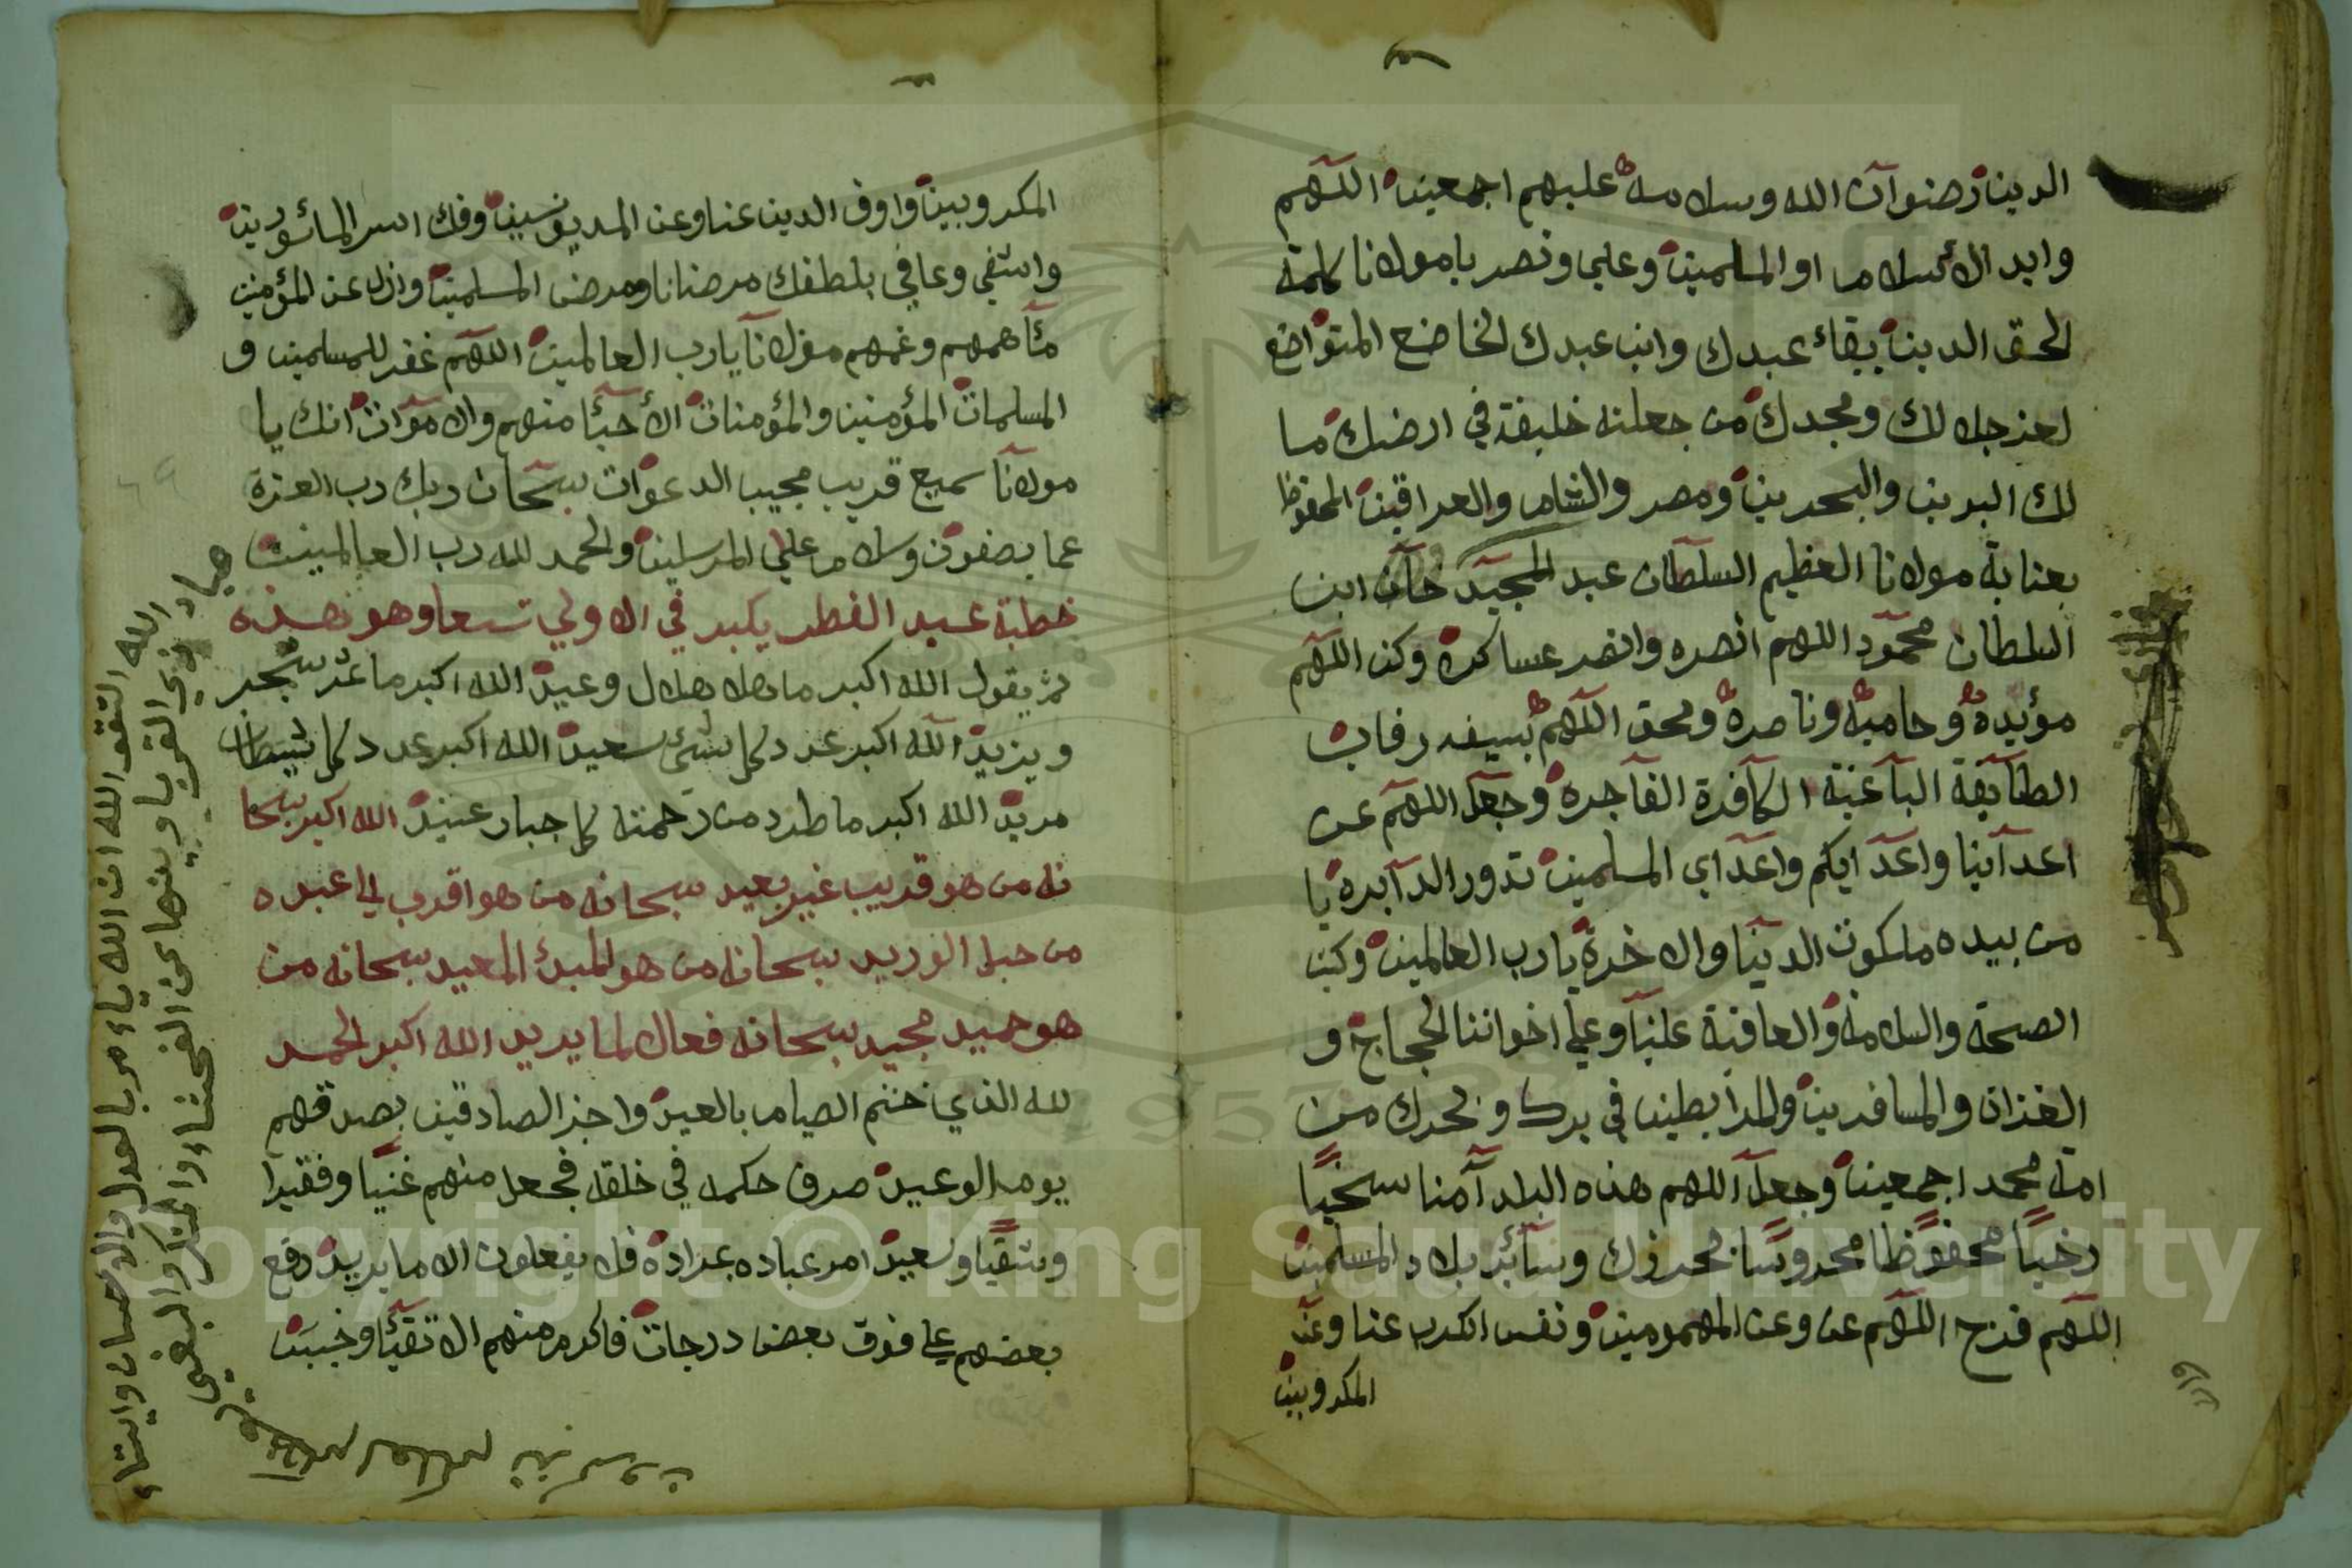 الدين رضنوان الله وسلامه عليهم اجمعين اللهم
وايد الأسلام او المسلمين وعلي ونصر يا مولانا كلمة
الحق الدين ببقاء عبدك وابن عبدك الخاضع المتواضع
لعز جلالك ومجدك من جعلته خليفة في ارضك ما
لك البرين والبحرين ومصر والشام والعراقين المحفوظ
بعناية مولانا العظيم السلطان عبد المجيد خان ابن
السلطان محمود اللهم انصره وانصر عساكره وكن اللهم
مؤيده وحاميه وناصره ومحق اللهم بسيفه رقاب
الطايفة الباغية الكافرة الفاجره وجعل اللهم عن
اعداينا واعدايكم واعداي المسلمين تدور الدايره يا
من بيده ملكوت الدينا والاخرة يا رب العالمين وكتب
الصحة والسلامة والعافية علينا وعلى اخواننا الحجاج و
الغزاة والمسافرين والمرابطين في برك وبحرك من
امة محمد اجمعين وجعل اللهم هذه البلد آمنا سخيا
رخيا محفوظا محروسا محرزك وسائر بلاد المسلمين
اللهم فرج اللهم عن وعن المهمومين ونفس الكرب عنا وعن
المكروبين
المكروبين واوف الدين عنا وعن المديونسين وفك اسر المائسورين
واشفي وعافي بلطفك مرضانا ومرض المسلمين وازل عن المؤمنين
مئا همهم وغمهم مولانا يا رب العالمين اللهم غفر للمسلمين و
المسلمات المؤمنين والمؤمنات الأحيئا منهم والاموات انك يا
مولانا سميع قريب مجيب الدعوات سبحان ربك رب العزة
عما يصفون وسلام على المرسلين والحمد لله رب العالمين
خطبة عيد الفطر يكبر في الاولي تسعا وهو هذه
ثم يقول الله اكبر ما هل هلال وعيد الله اكبر ما غرس شجر
ويزيد الله اكبر عدد كل شئ سعيد الله اكبر عدد كل شيطان
مريد الله اكبر ما طرد من رحمته كل جبار عنيد الله اكبر سبحا
نه من هو قريب غير بعيد سبحانه من هو اقرب الى عبده
من حبل الوريد سبحانه من هو المبدئ المعيد سبحانه من
هو حميد مجيد سبحانه فعال لما يريد الله اكبر الحمد
لله الذي ختم الصيام بالعيد واجز الصادقين بصدقهم
يوم الوعيد صرف حكمه في خلقه فجعل منهم غنيا وفقيرا
وشقيا وسعيد امر عباده بمراده فلا يفعلون الا ما يريد رفع
بعضهم على فوق بعض درجات فاكرم منهم الاتقيئا وخيبت
عباد الله اتقو الله ان الله يا ءمر بالعدل والاحسان وايتاء
ذي القربا وينها عن الفحشاء والمنكر والبغي